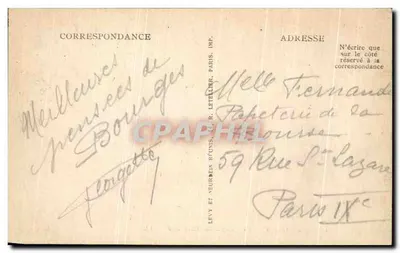 CORRESPONDANCE
Meilleures
pensées de
Bourges
Georgette
LEVY ET NEURDEIN RÉUNIS, R. LETELLIER, PARIS, IMP.
ADRESSE
N'écrire que
sur le côté
réservé à la
correspondance
Melle Fernande
Papeterie de la
Bourse
59 Rue St Lazare
Paris IXe
CPARAMA